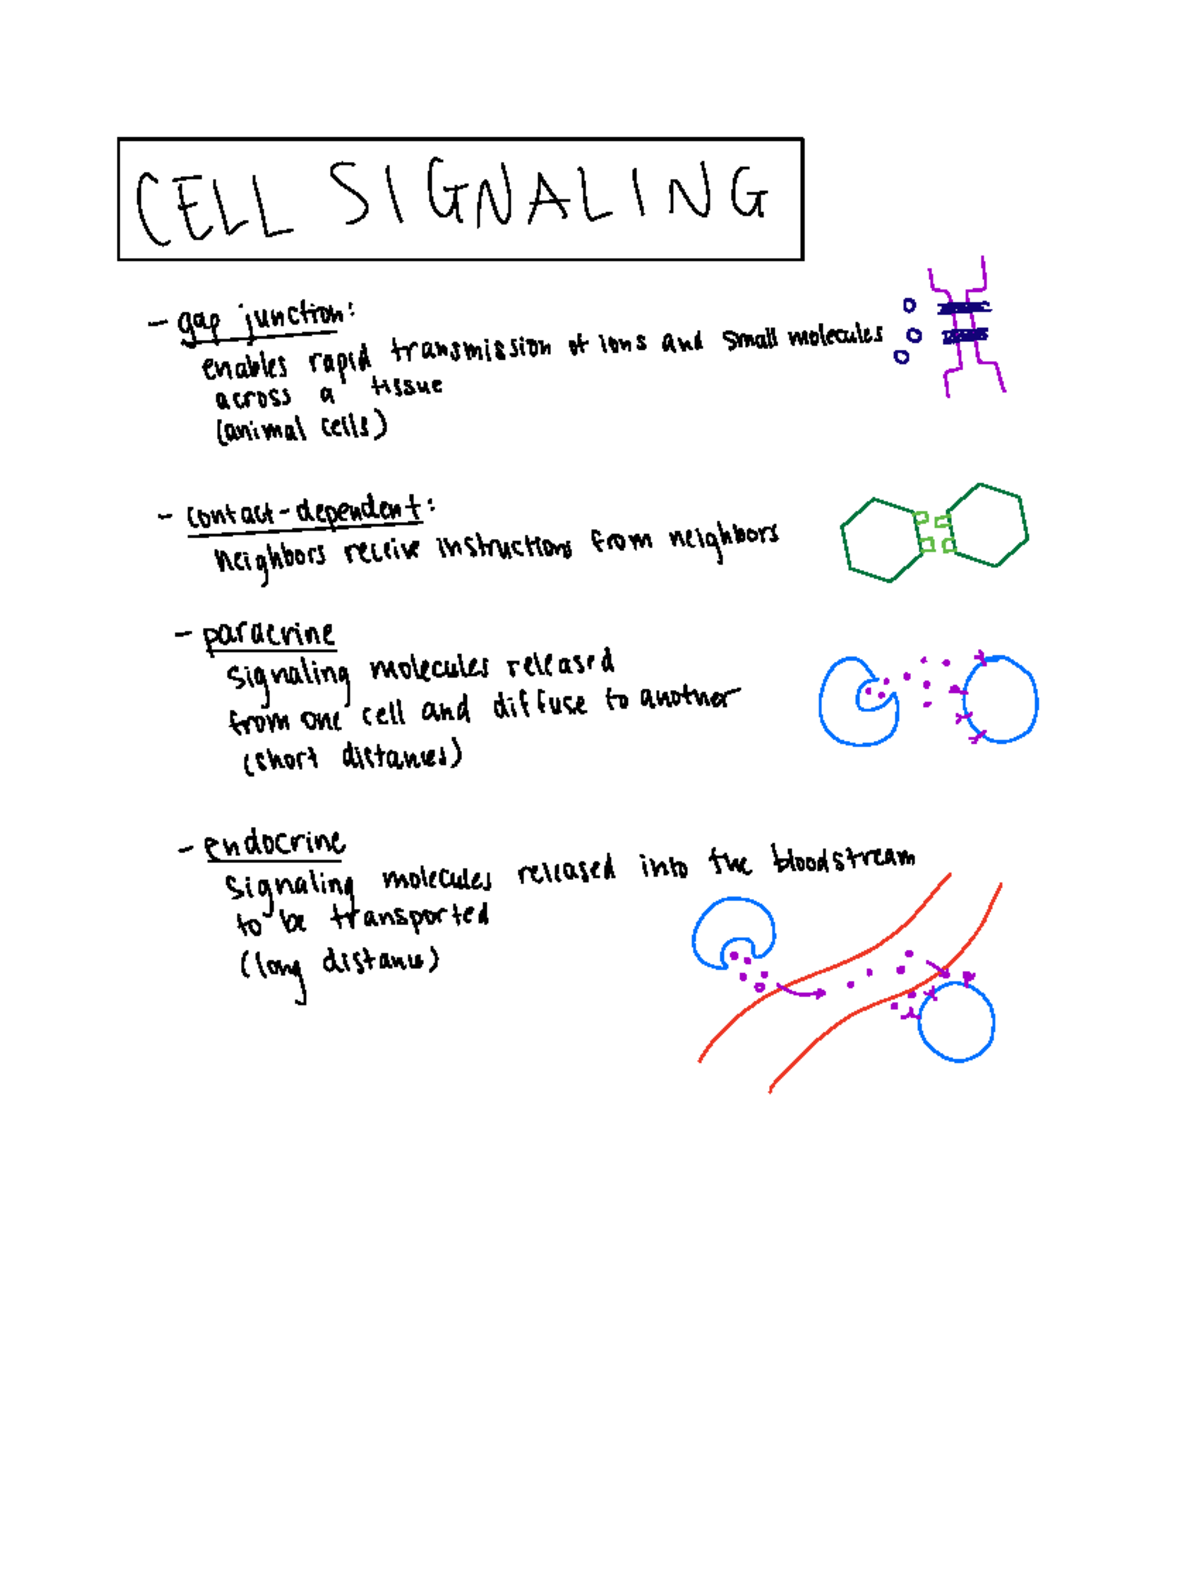 CELL SIGNALING
- gap junction:
enables rapid transmission of ions and small molecules
across a tissue
(animal cells)
- contact-dependent:
neighbors receive instructions from neighbors
- paracrine
signaling molecules released
from one cell and diffuse to another
(short distances)
- endocrine
signaling molecules released into the bloodstream
to be transported
(long distance)